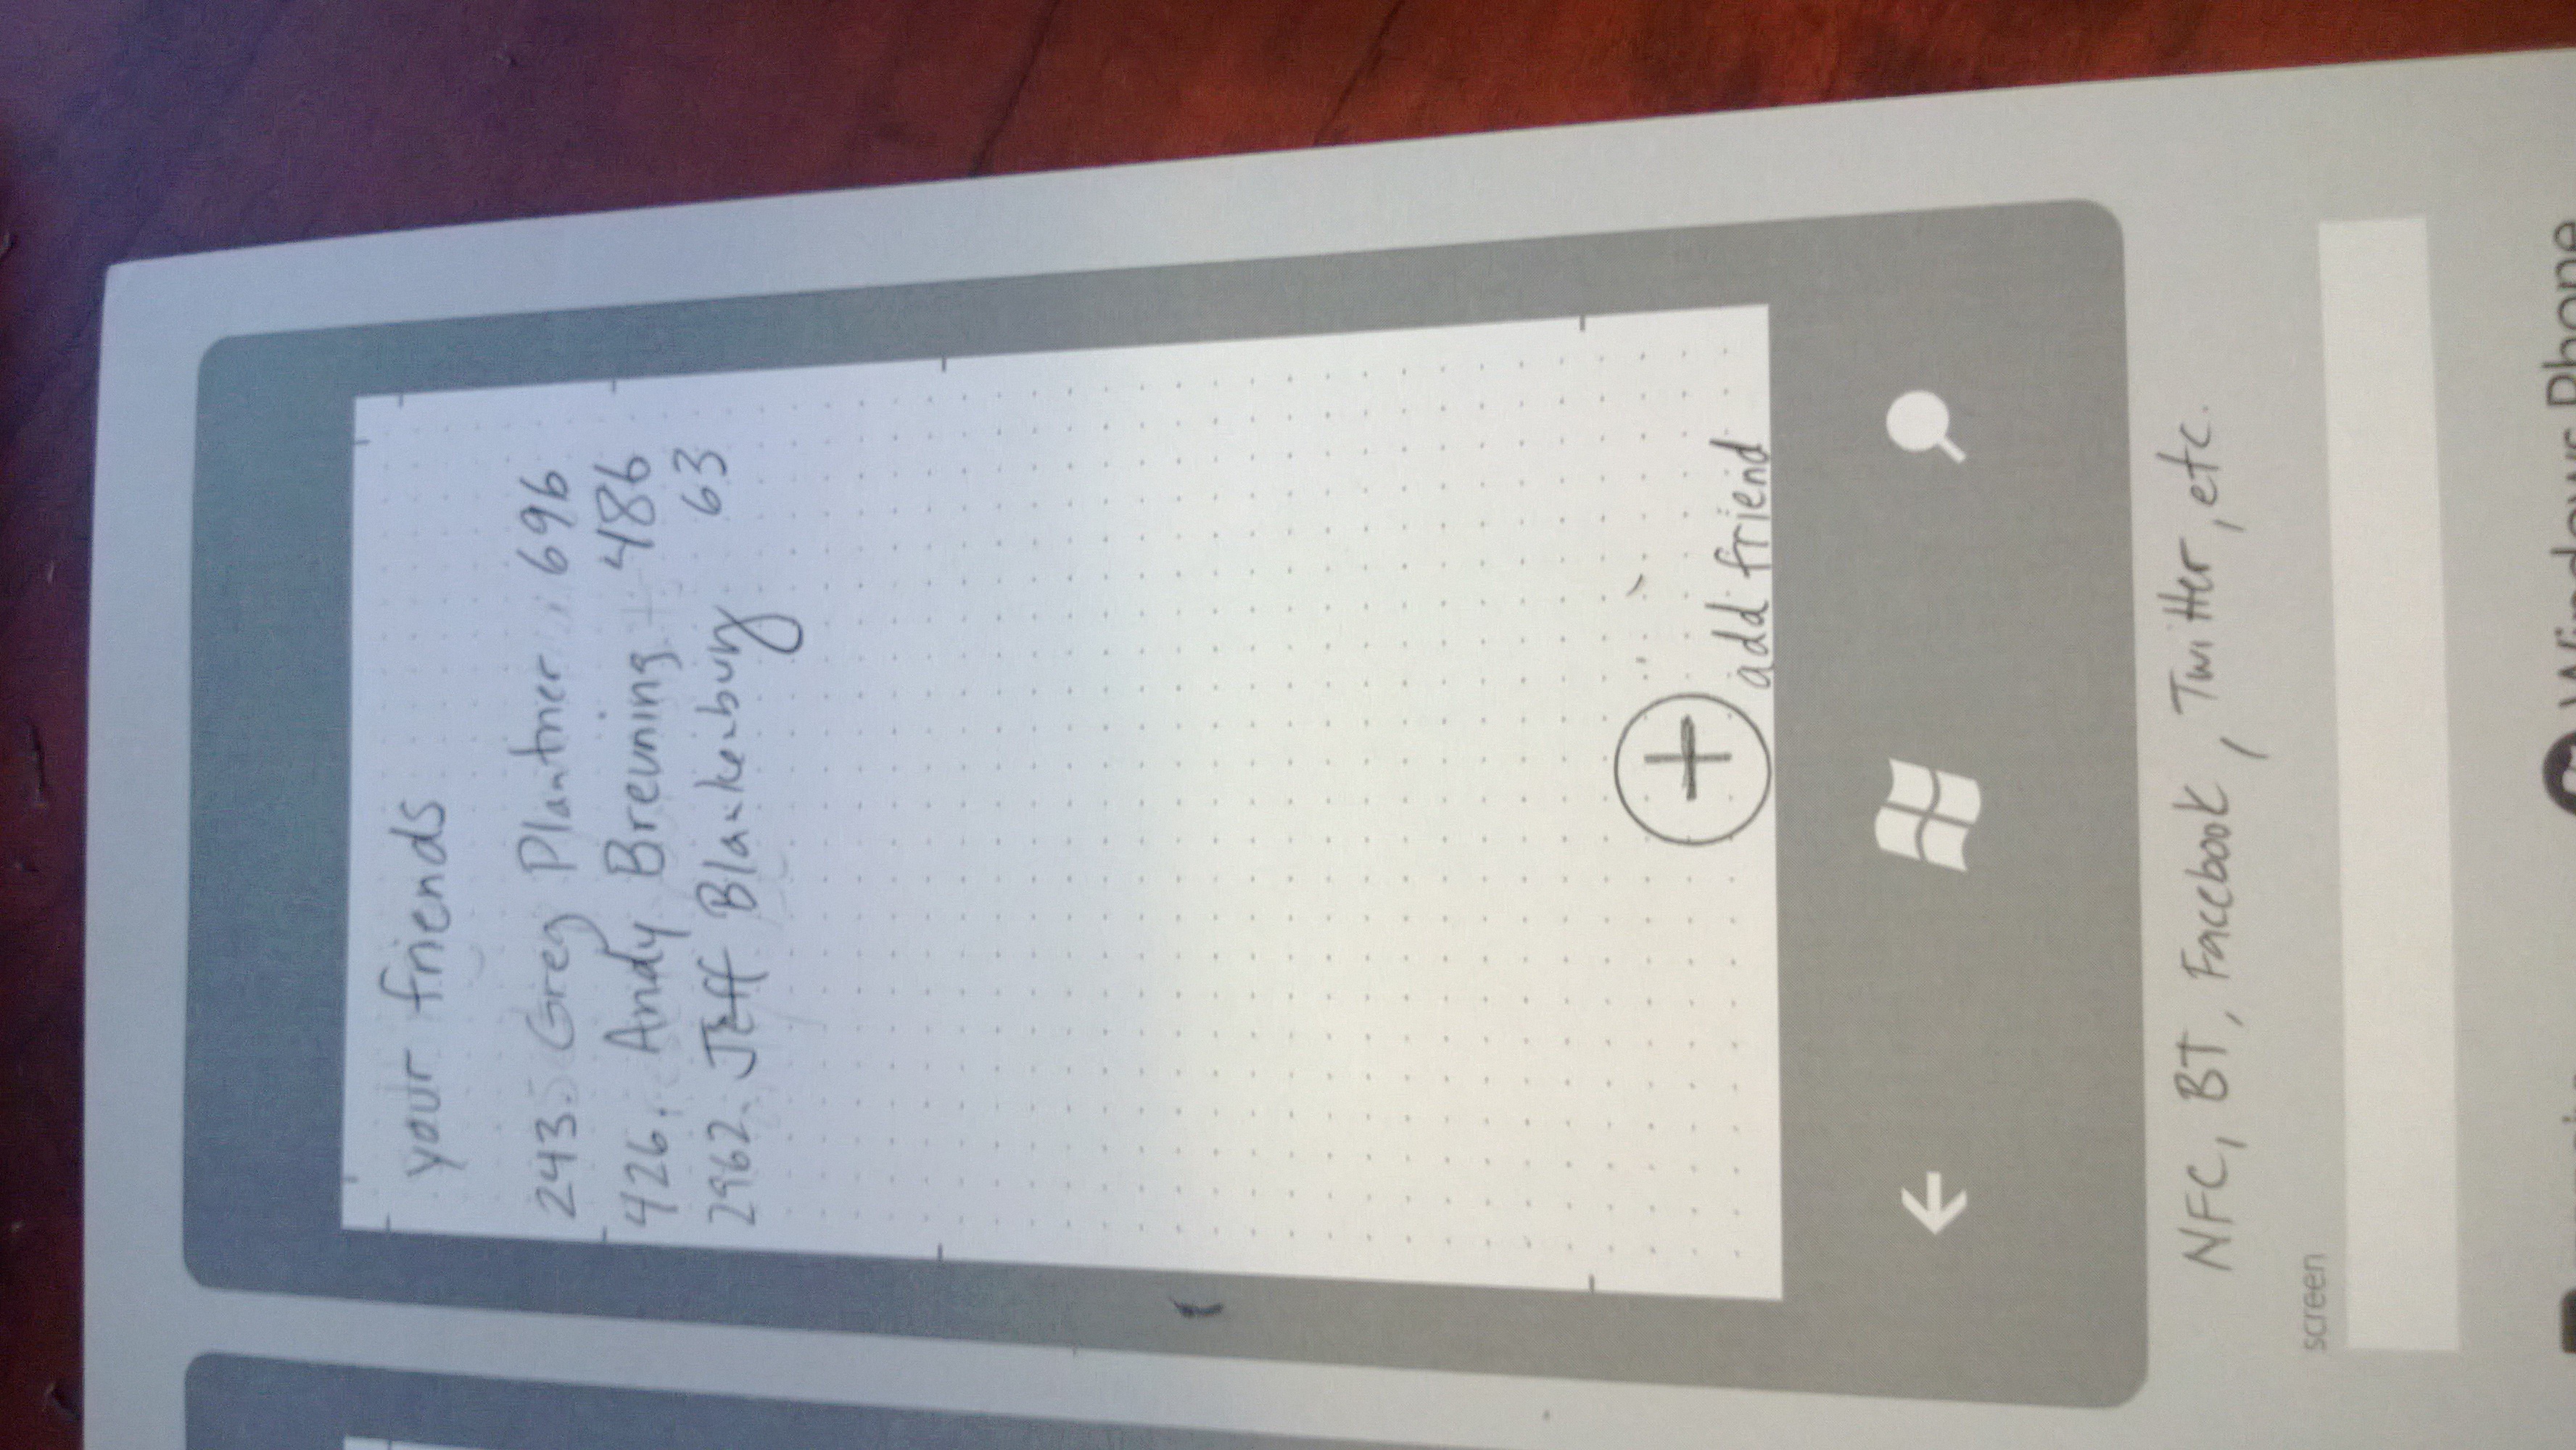 your friends
243. Greg Plantner 696
426. Andy Breuning 486
2962. Jeff Blankenburg 63
add friend
NFC, BT, Facebook, Twitter, etc.
screen
Windows Phone